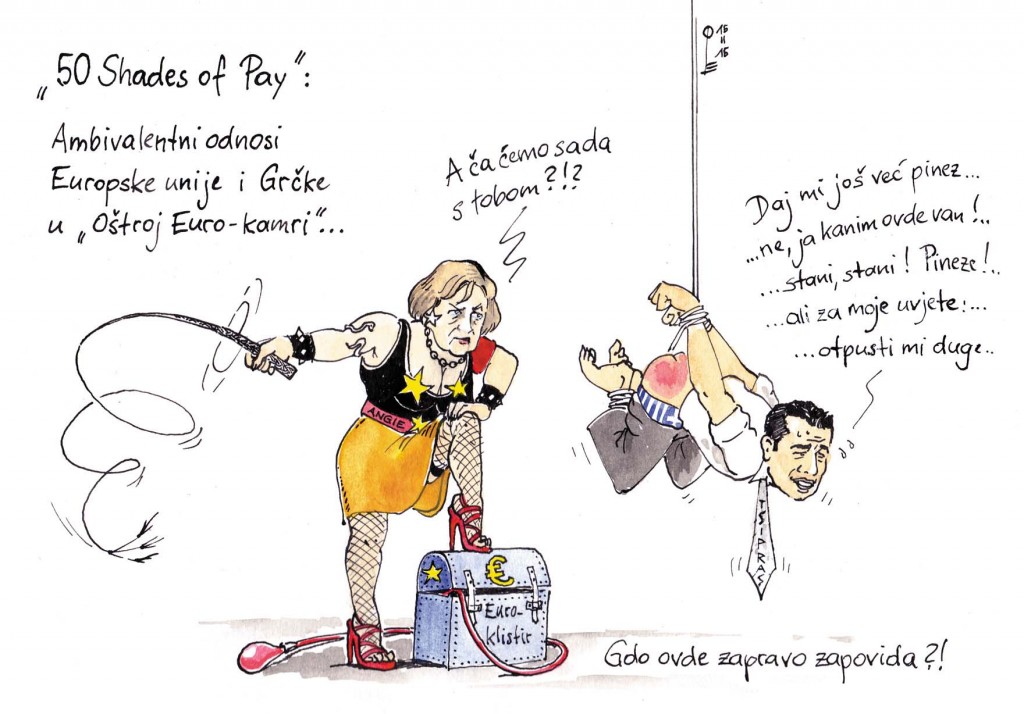 „50 Shades of Pay“:
Ambivalentni odnosi
Europske unije i Grčke
u „Oštroj Euro-kamri“...
A ča ćemo sada
s tobom?!?
15
15
Daj mi još već pinez...
...ne, ja kanim ovde van!..
...stani, stani! Pineze!..
...ali za moje uvjete:...
...otpusti mi duge..
ANGIE
TSIPRAS
€
Euro-
klistir
Gdo ovde zapravo zapovida?!